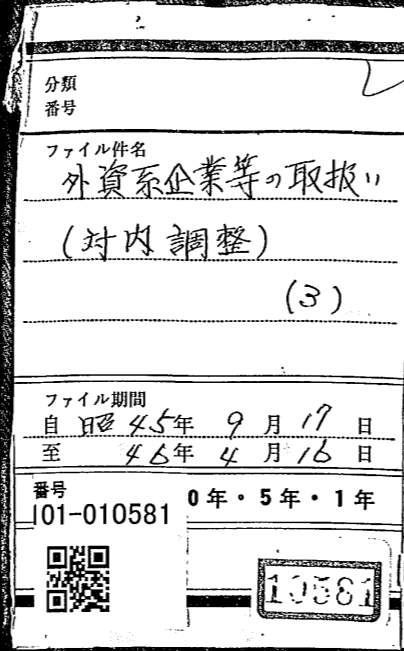 分類
番号
ファイル件名
外資系企業等の取扱い
(対内調整)
(3)
ファイル期間
自 昭45年 9月17日
至 46年 4月16日
番号
101-010581
0年・5年・1年
10581